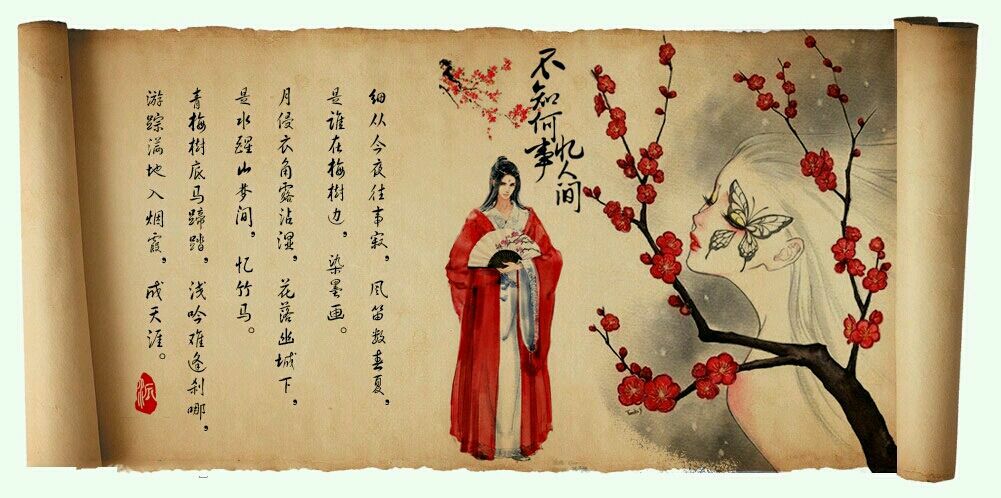 不知何事
忆人间
细从今夜往事寂，风笛数春夏，
是谁在梅樹边，染墨画。
月侵衣角露沾湿，花落幽城下，
是水醒山梦间，忆竹马。
青梅樹底马蹄踏，浅吟难逢刹哪，
游踪满地入烟霞，成天涯。